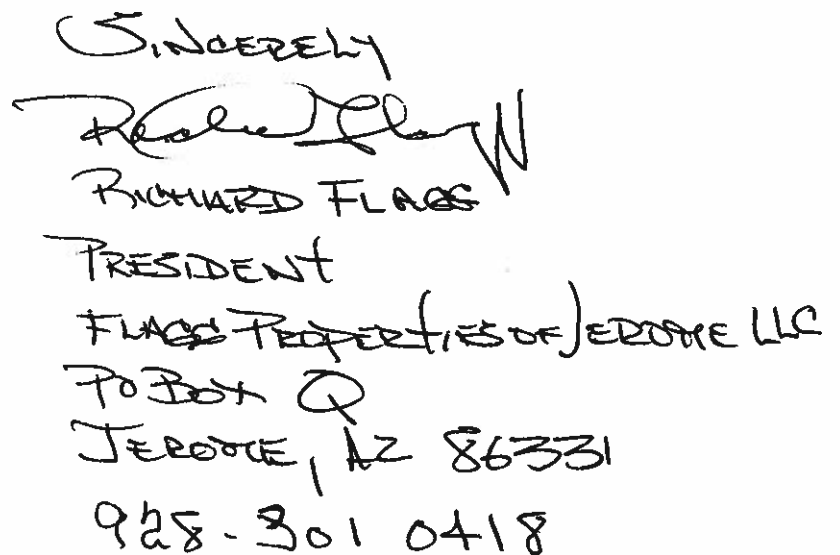 SINCERELY
RICHARD FLAGG
PRESIDENT
FLAGG PROPERTIES OF JEROME LLC
PO BOX Q
JEROME, AZ 86331
928-301 0418